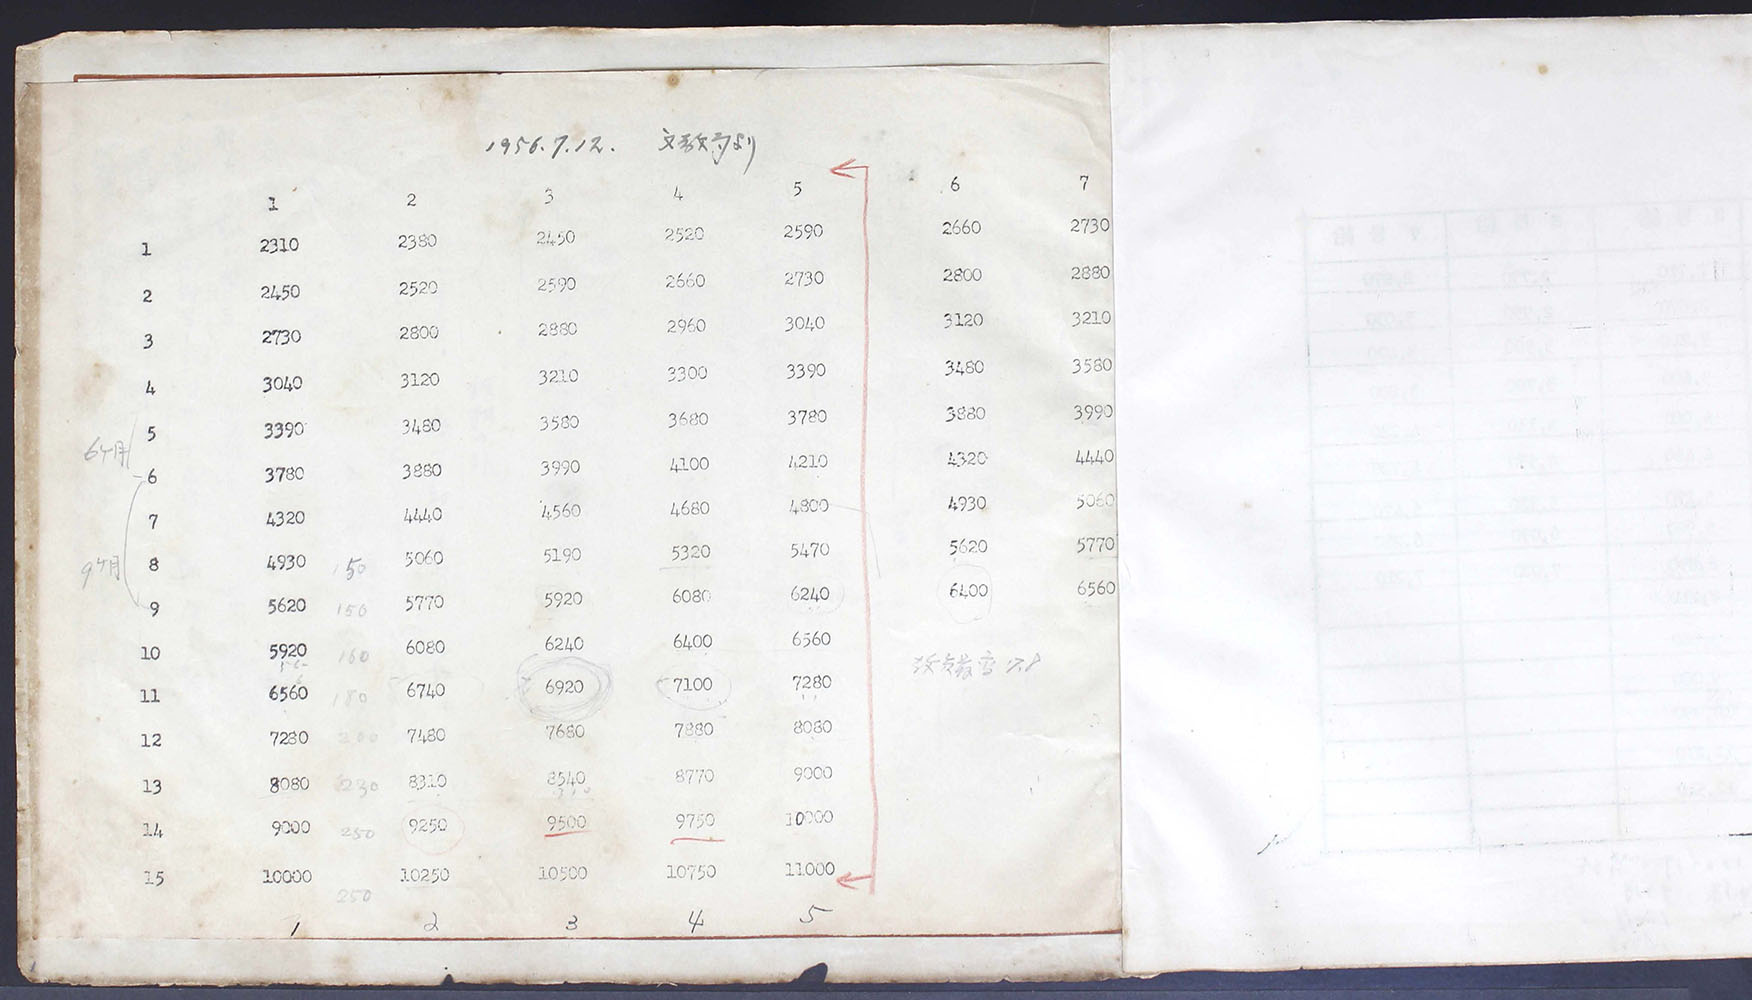 1956.7.12. 文教局別
1 2 3 4 5 6 7
1 2310 2380 2450 2520 2590 2660 2730
2 2450 2520 2590 2660 2730 2800 2880
3 2730 2800 2880 2960 3040 3120 3210
4 3040 3120 3210 3300 3390 3480 3580
5 3390 3480 3580 3680 3780 3880 3990
6ケ月
6 3780 3880 3990 4100 4210 4320 4440
7 4320 4440 4560 4680 4800 4930 5060
9ケ月 8 4930 150 5060 5190 5320 5470 5620 5770
9 5620 150 5770 5920 6080 6240 6400 6560
10 5920 160 6080 6240 6400 6560
11 6560 180 6740 6920 7100 7280
12 7280 200 7480 7680 7880 8080
13 8080 230 8310 8540 8770 9000
14 9000 250 9250 9500 9750 10000
15 10000 250 10250 10500 10750 11000
1 2 3 4 5